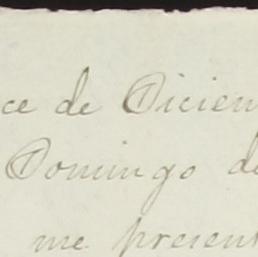 ce de Diciem
Domingo de
me present